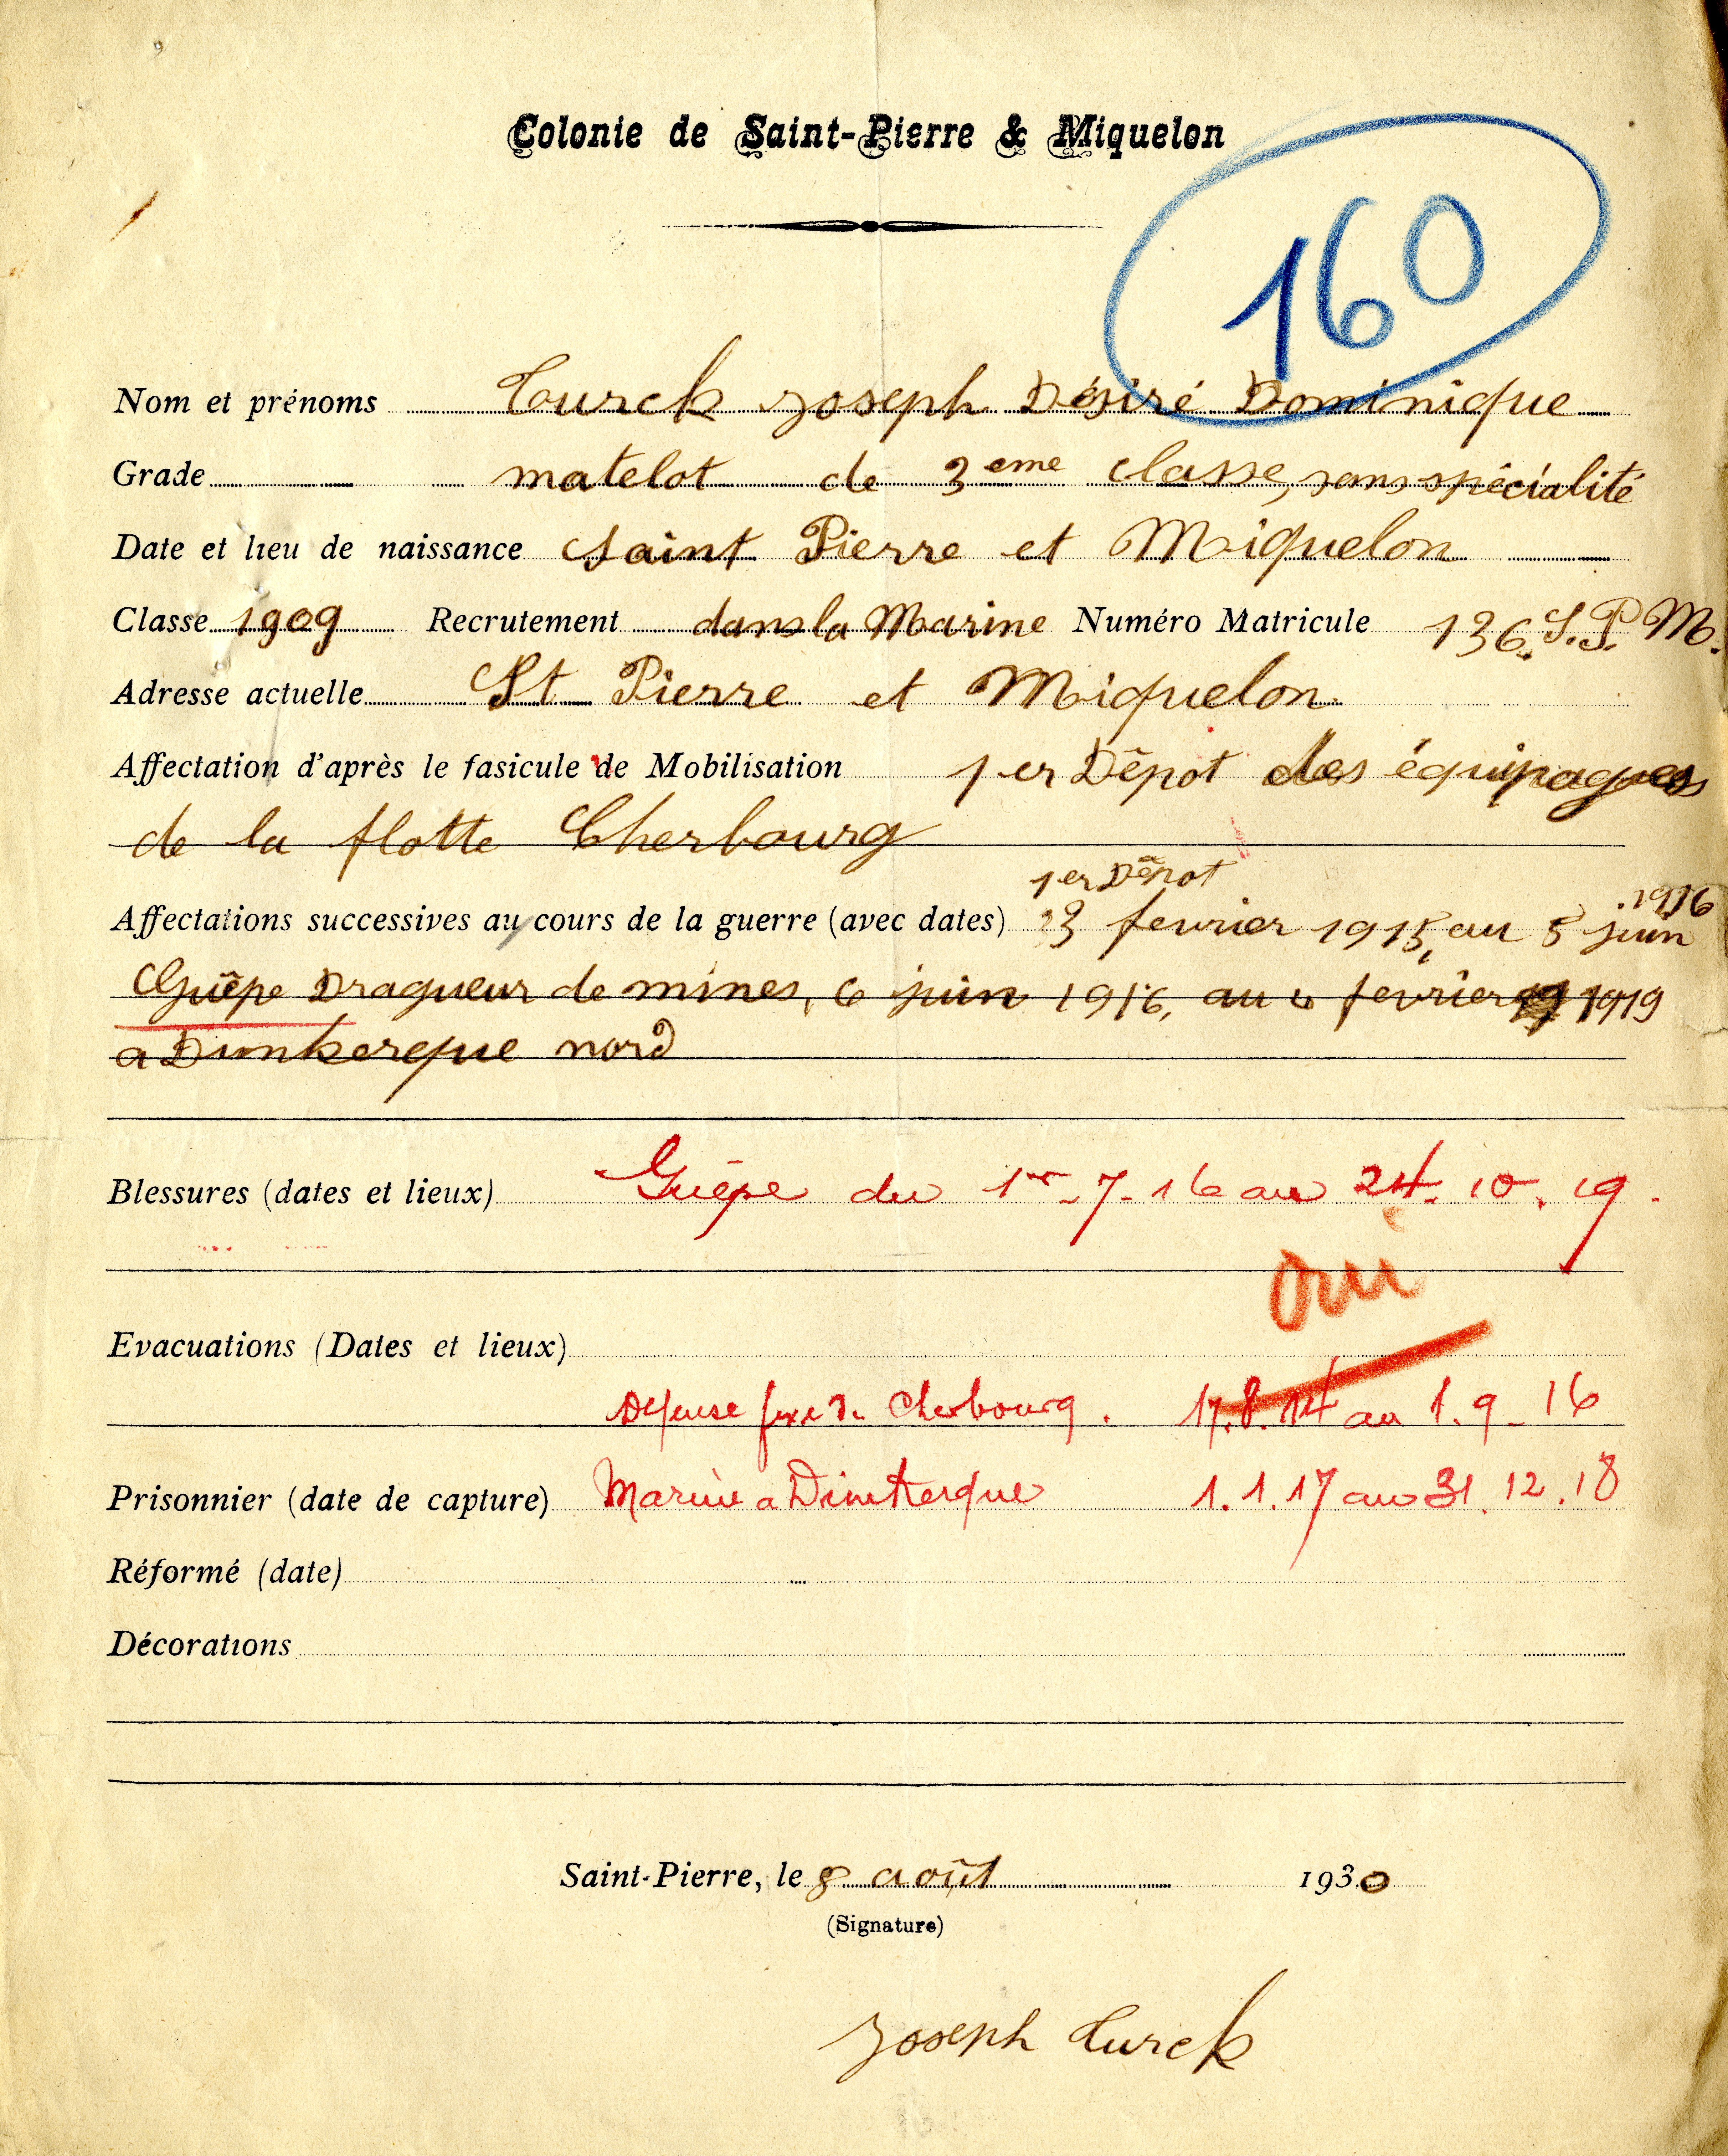 Colonie de Saint-Pierre & Miquelon
160
Nom et prénoms Turck Joseph Désiré Dominique
Grade matelot de 3eme classe, sans spécialité
Date et lieu de naissance Saint Pierre et Miquelon
Classe 1909 Recrutement dans la Marine Numéro Matricule 136. S. P. M.
Adresse actuelle St Pierre et Miquelon
Affectation d'après le fasicule de Mobilisation 1er Dépot des équipages
de la flotte Cherbourg
1er Dépot
Affectations successives au cours de la guerre (avec dates) 23 fevrier 1915, au 5 juin 1916
Guêpe Dragueur de mines, 6 juin 1916, au fevrier 1919
a Dunkerque nord
Blessures (dates et lieux) Guêpe du 1er-7-16 au 24.10.19.
oui
Evacuations (Dates et lieux)
Defense fixe de Cherbourg. 17.8.14 au 1.9-16
Prisonnier (date de capture) Marine a Dunkerque 1.1.17 au 31.12.18
Réformé (date)
Décorations
Saint-Pierre, le 8 août 1930
(Signature)
Joseph Turck